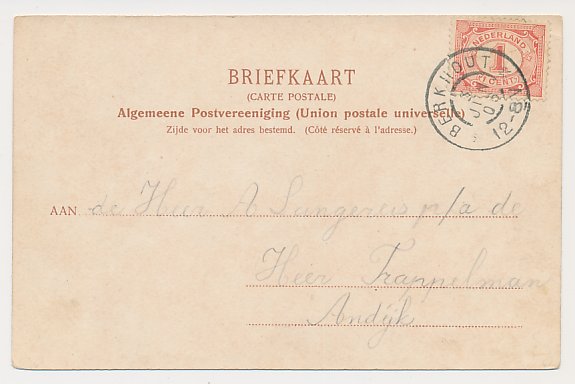 NEDERLAND
1
CENT
BERKHOUT
12-8N
BRIEFKAART
(CARTE POSTALE)
Algemeene Postvereeniging (Union postale universelle)
Zijde voor het adres bestemd. (Côté réservé à l'adresse.)
AAN de Heer A Langereis p/a de
Heer Trappelman
Andijk